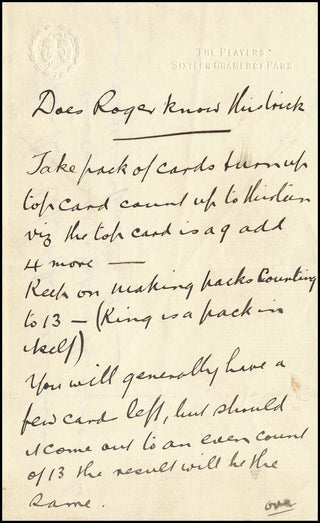 THE PLAYERS
SIXTEEN GRAMERCY PARK
Does Roger know this trick
Take pack of cards turn up
top card count up to thirteen
viz the top card is a 9 add
4 more —
Keep on making packs Counting
to 13 — (King is a pack in
itself)
You will generally have a
few card left, but should
it come out to an even count
of 13 the result will be the
same.
over